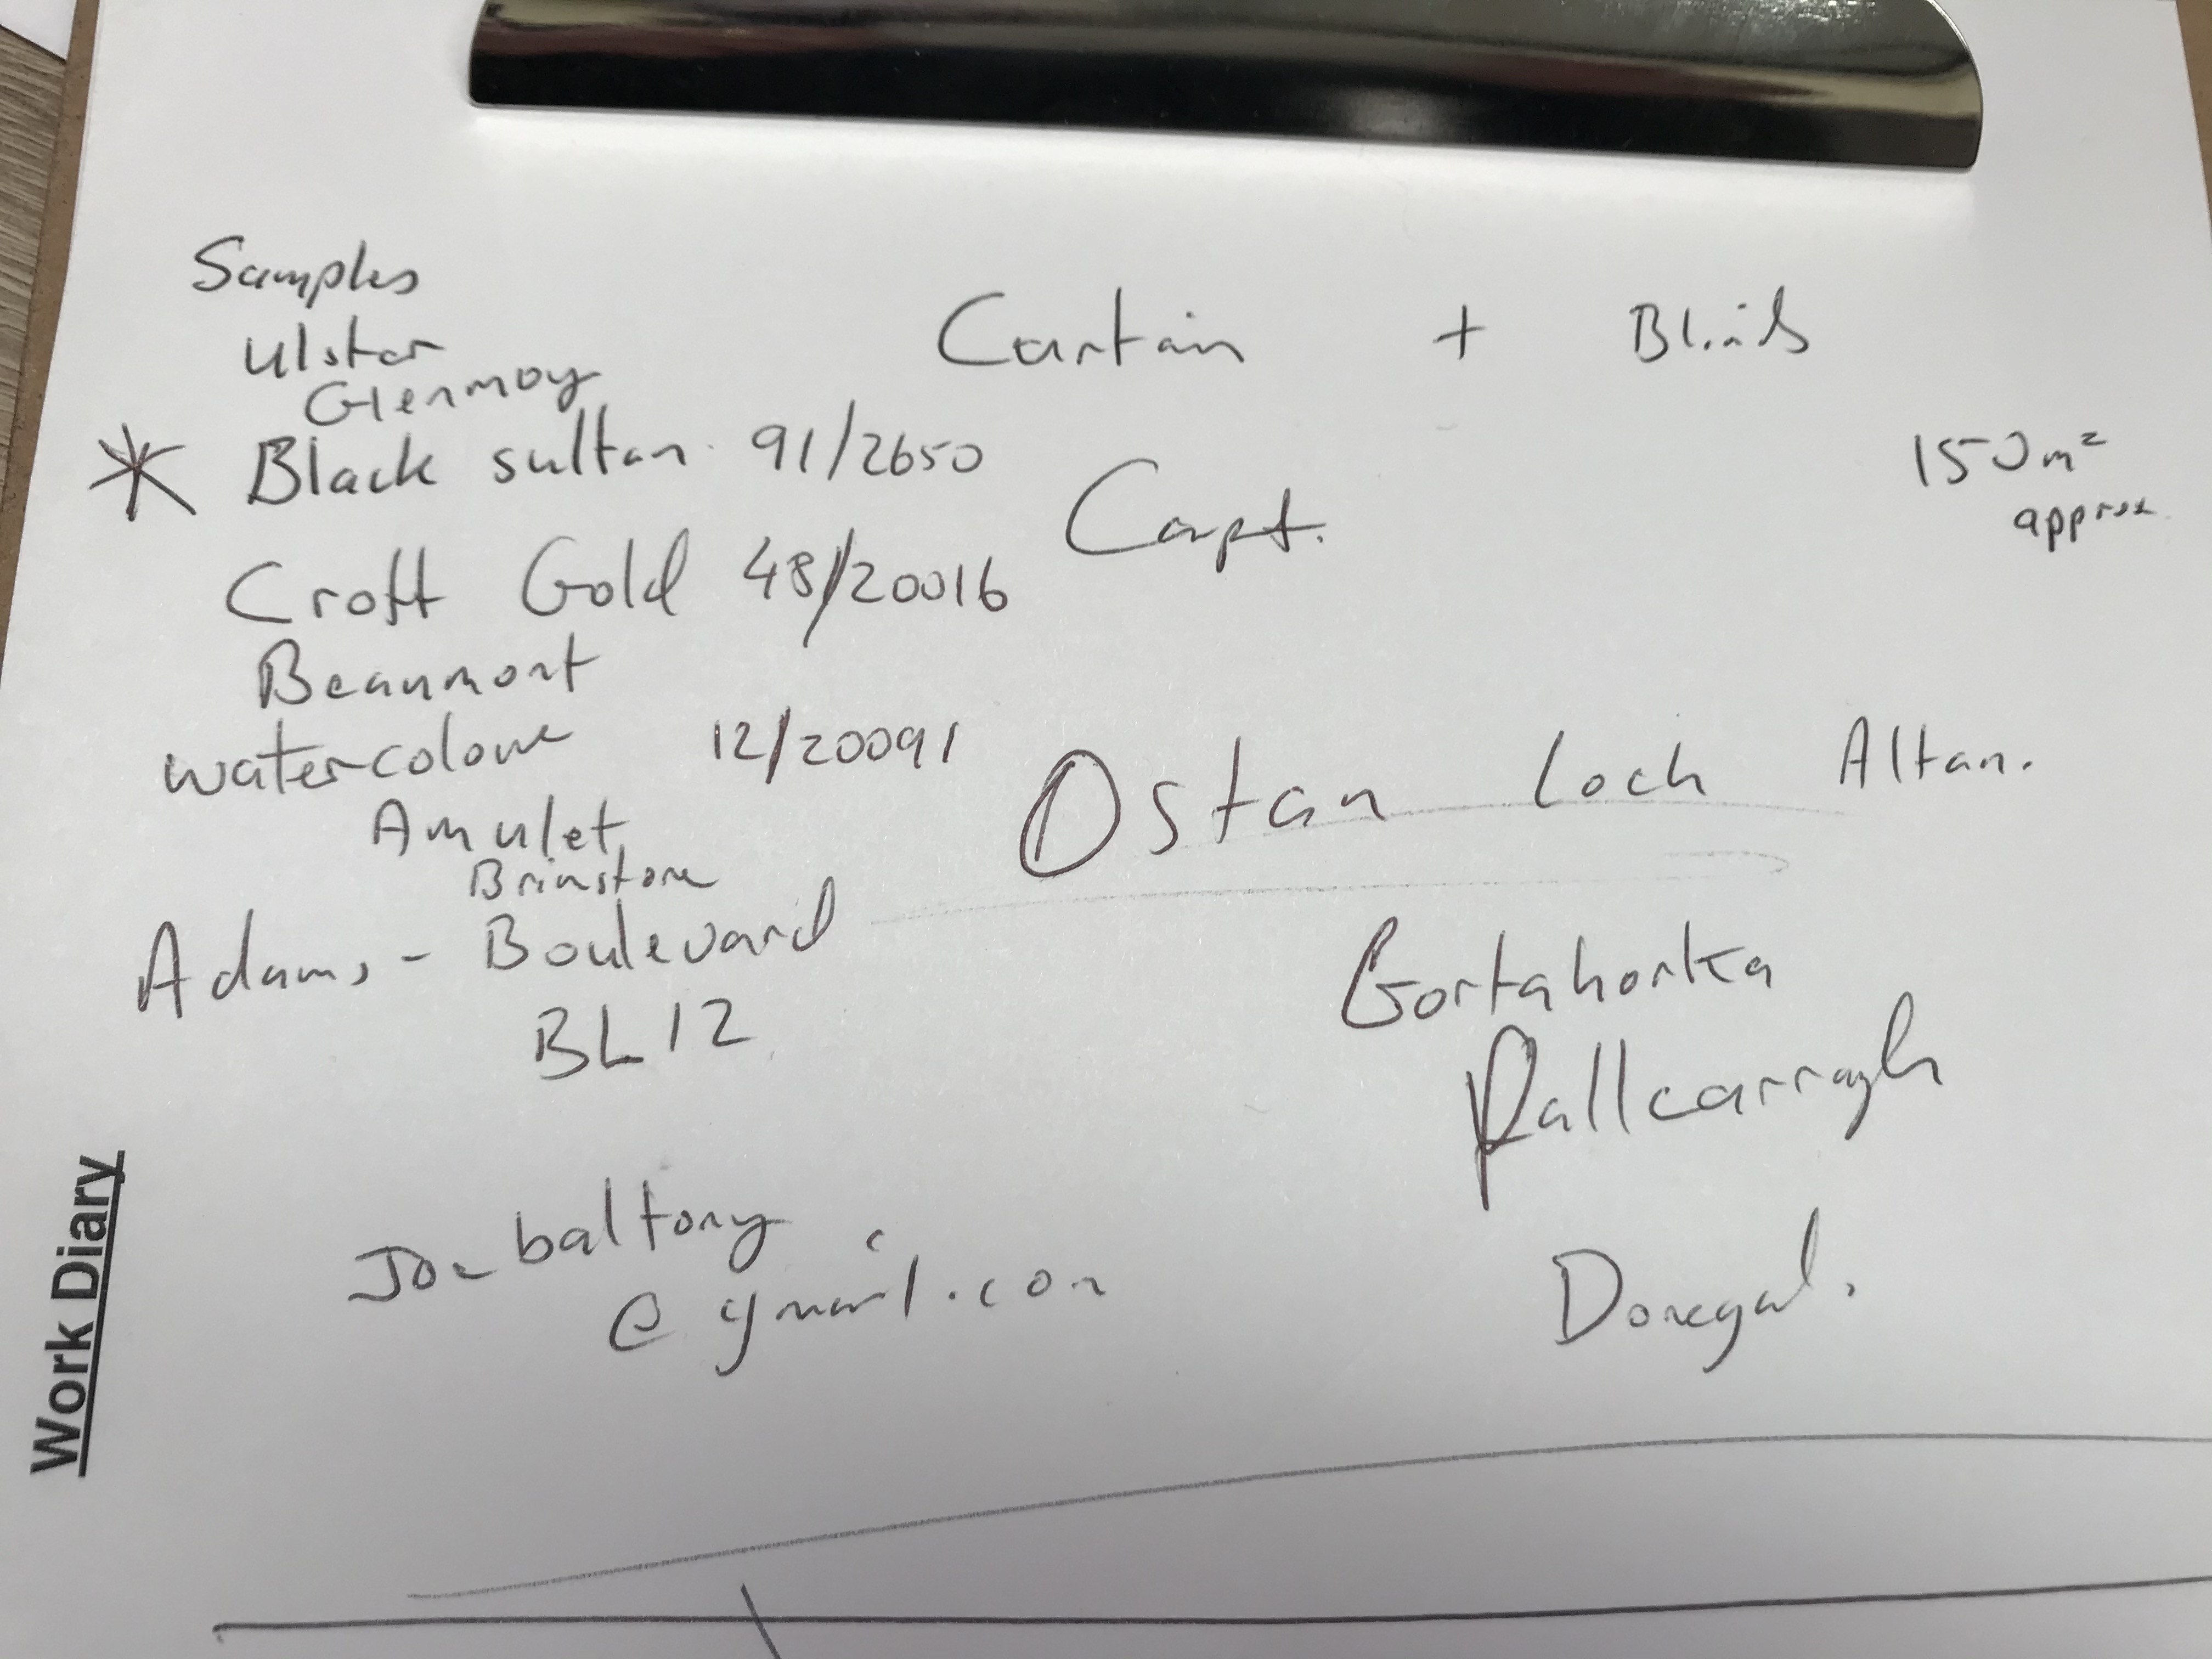 Samples
Ulster
Glenmoy
Curtain + Blinds
* Black sultan 91/2650
150m² approx
Carpt.
Croft Gold 48/20016
Beaumont
watercolour 12/20091
Ostan Loch Altan.
Amulet
Brimstone
Adams - Boulevard
BL12
Gortahorka
Rallcarragh
Donegal.
Joe baltony
@gmail.com
Work Diary